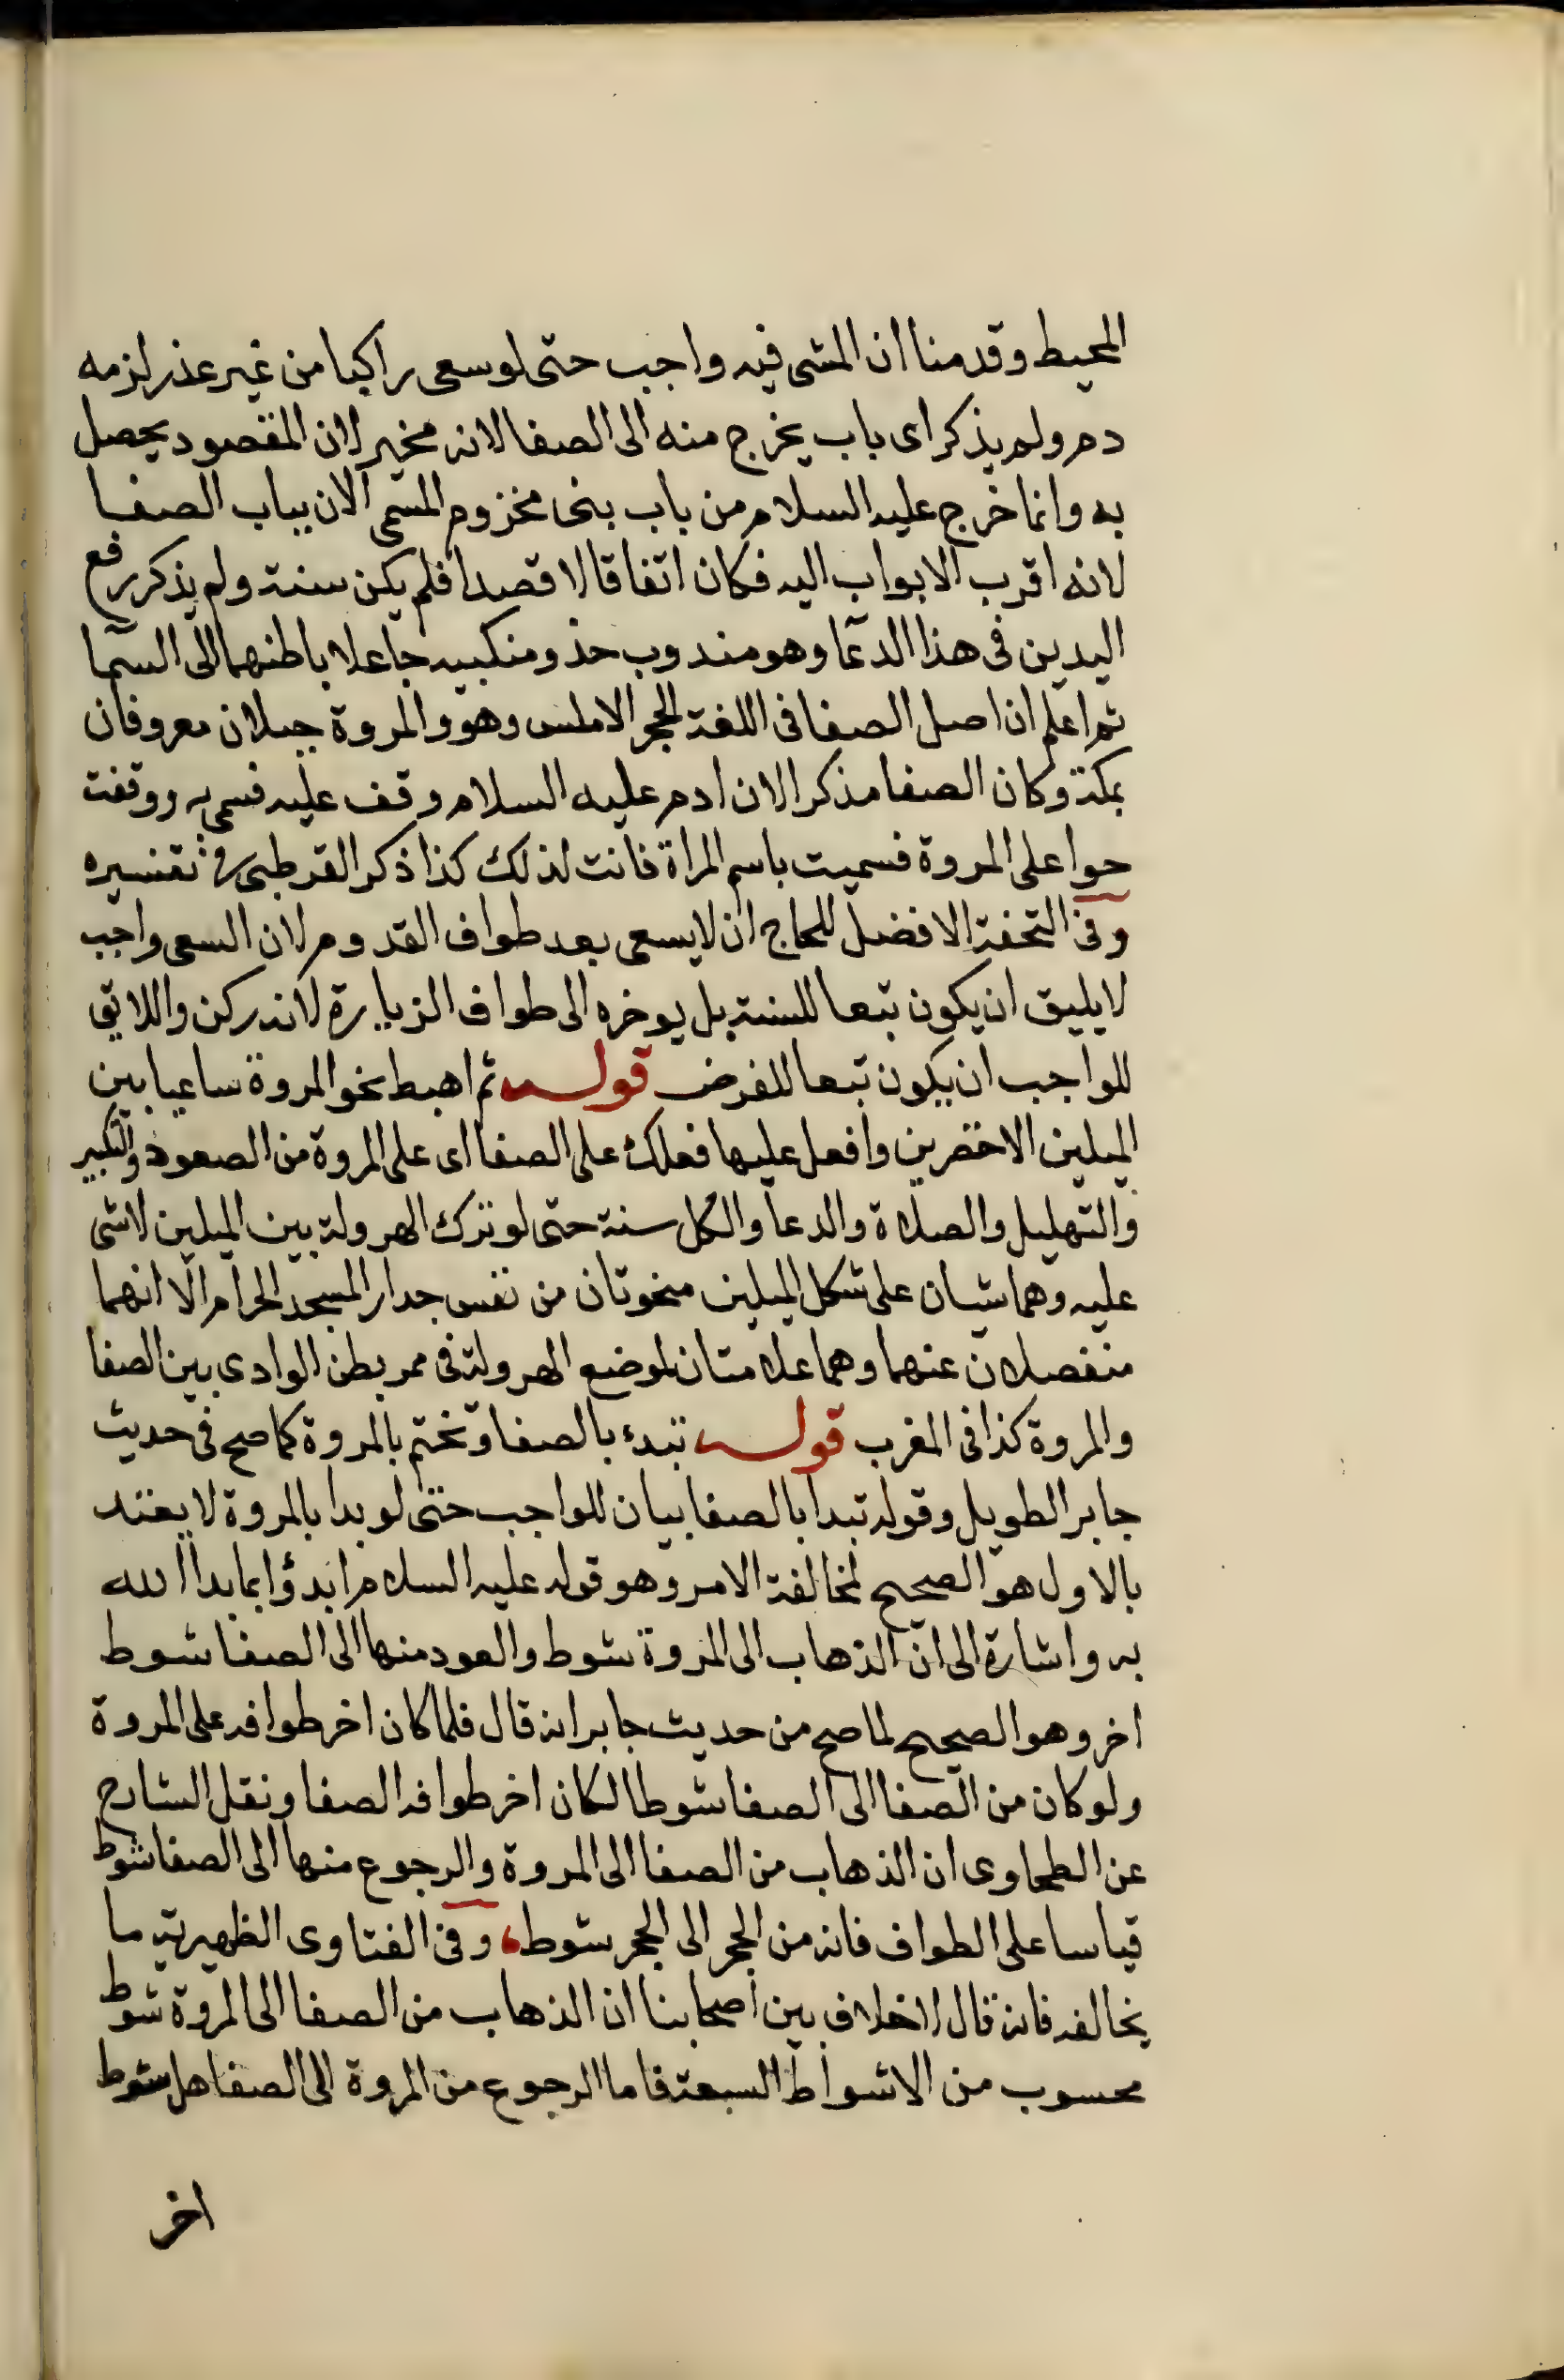 المحيط وقدمنا ان المشى فيه واجب حتى لو سعى راكبا من غير عذر لزمه
دم ولم يذكر اى باب يخرج منه الى الصفا لانه مخير لان المقصود يحصل
به وانما خرج عليه السلام من باب بنى مخزوم المسمى الان بباب الصفا
لانه اقرب الابواب اليه فكان اتفاقا لا قصدا فلم يكن سنة ولم يذكر رفع
اليدين فى هذا الدعا وهو مندوب حذو منكبيه جاعلا باطنهما الى السما
ثم اعلم ان اصل الصفا فى اللغة الحجر الاملس وهو والمروة جبلان معروفان
بمكة وكان الصفا مذكرا لان ادم عليه السلام وقف عليه فسمى به ووقفت
حوا على المروة فسميت باسم المراة فانت لذلك كذا ذكر القرطبى فى تفسيره
وفى التحفة الافضل للحاج ان لا يسعى بعد طواف القدوم لان السعى واجب
لا يليق ان يكون تبعا للسنة بل يوخره الى طواف الزيارة لانه ركن واللايق
للواجب ان يكون تبعا للفرض قوله ثم اهبط نحو المروة ساعيا بين
الميلين الاخضرين وافعل عليها فعلك على الصفا اى على المروة من الصعود والتكبير
والتهليل والصلاة والدعا والكل سنة حتى لو ترك الهرولة بين الميلين لا شى
عليه وهما شيان على شكل الميلين منحوتان من نفس جدار المسجد الحرام الا انهما
منفصلان عنهما وهما علامتان لموضع الهرولة فى ممر بطن الوادى بين الصفا
والمروة كذا فى المغرب قوله تبدء بالصفا وتختم بالمروة كما صح فى حديث
جابر الطويل وقوله تبدا بالصفا بيان للواجب حتى لو بدا بالمروة لا يعتد
بالاول هو الصحيح لمخالفة الامر وهو قوله عليه السلام ابدؤا بما بدا الله
به واشارة الى ان الذهاب الى المروة شوط والعود منها الى الصفا شوط
اخر وهو الصحيح لما صح من حديث جابر انه قال فلما كان اخر طوافه على المروة
ولو كان من الصفا الى الصفا شوطا لكان اخر طوافه الصفا ونقل الشارح
عن الطحاوى ان الذهاب من الصفا الى المروة والرجوع منها الى الصفا شوط
قياسا على الطواف فانه من الحجر الى الحجر شوط، وفى الفتاوى الظهيرية ما
يخالفه فانه قال لا خلاف بين اصحابنا ان الذهاب من الصفا الى المروة شوط
محسوب من الاشواط السبعة فاما الرجوع من المروة الى الصفا هل شوط
اخر